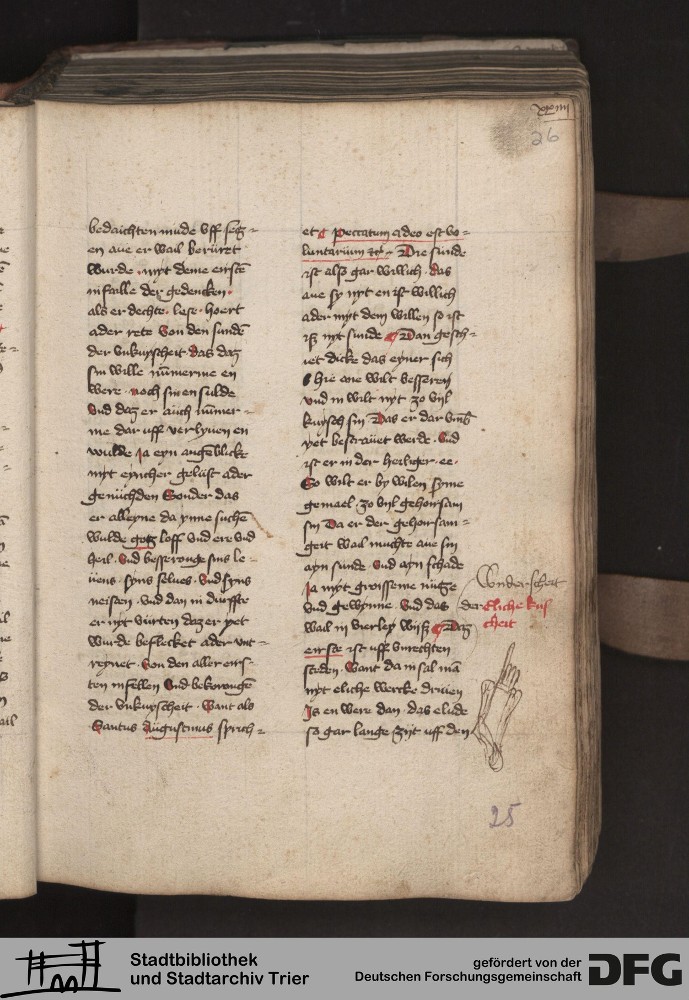 xxiiii
26
bedaichten mude vff setz=
en aue er wail beruret
wurde. nyt deme eirstē
infalle der gedencken.
als er dechte. lese. hoert
ader rete Von den sundē
der vnkuyscheit das daz
sin wille nūmerme en
were. noch sin en sulde
Vnd daz er auch nūmer=
me dar uff verlyuen en
wulde Ja eyn augēblicke
nyt eyncher gelust ader
genuchden Sonder das
er alleyne da ynne suchē
wulde gotz loff Vnd ere vnd
heil. Vnd besseronge sins le=
uens. syns selues. Vnd syns
neisten. Vnd dan in durffte
er nyt vurten daz er yet
wurde beflecket ader vnt=
reynet. Von den aller eirs=
ten infellen Vnd bekorongē
der vnkuyscheit. Want als
Santus Augustinus sprich=
et Peccatum adeo est vo=
luntarium Die sunde
ist alß gar willich. das
aue sy nyt en ist willich
ader nyt dem willen so ist
iß nyt sunde Dan gesch=
iet dicke das eyner sich
hie ane wilt besseren
vnd in wilt nyt zo vyl
kuysch sin Das er dar vmb
yet bestrauet werde. Vnd
ist er in der heiliger. ee.
So wilt er by wilen syme
gemael. zo vyl gehorsam
sin Da er der gehorsam=
geit wail muchte aue sin
ayn sunde. Vnd ayn schade
Ja nyt groisseme nutze
Vnd gewynne. Vnd das
wail in vierley wijß Daz
eirste ist uff vnrechten
steden. Want da in sal mā
nyt eliche wercke driuen
Is en were dan. das elude
so gar lange zijt uff den
Vonder scheit
der eliche kus
cheit
25
Stadtbibliothek
und Stadtarchiv Trier
gefördert von der
Deutschen Forschungsgemeinschaft
DFG